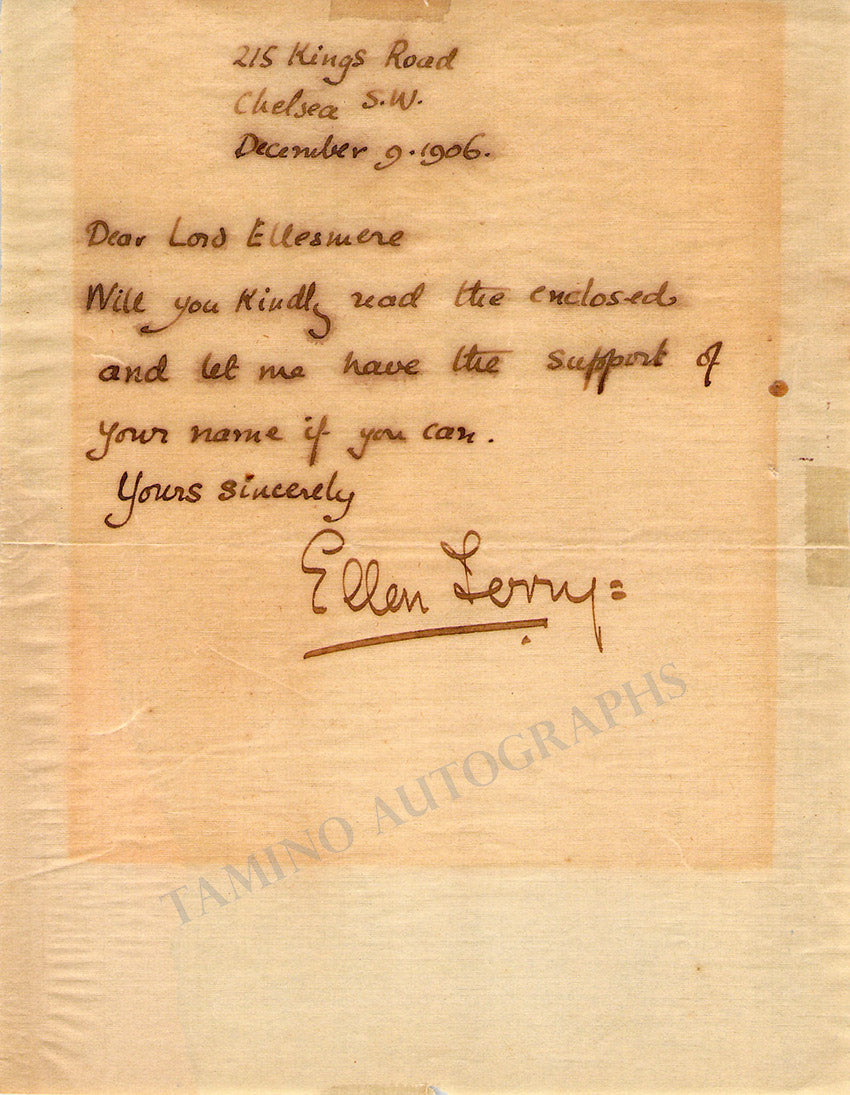 215 Kings Road
Chelsea S.W.
December 9.1906.
Dear Lord Ellesmere
Will you Kindly read the enclosed
and let me have the support of
your name if you can.
Yours sincerely
Ellen Terry:
TAMINO AUTOGRAPHS